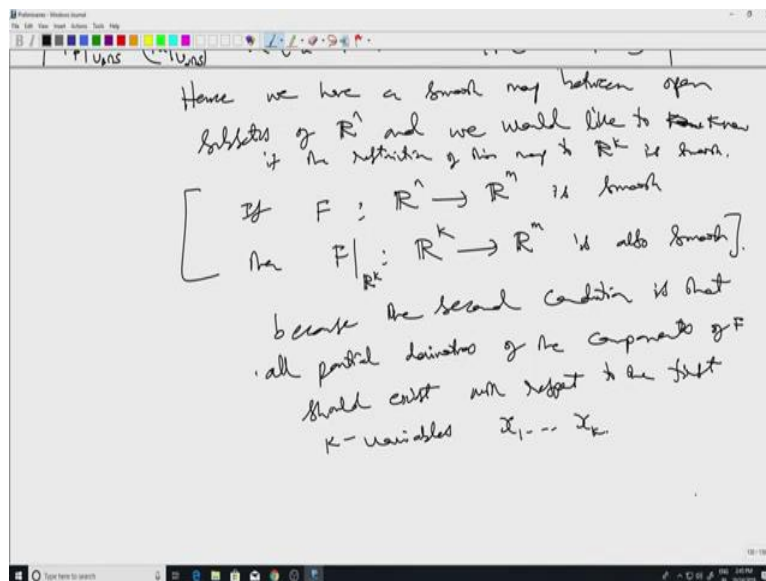 Preliminaries - Windows Journal
File Edit View Insert Actions Tools Help
Hence we have a smooth map between open
subsets of ℝⁿ and we would like to know
if the restriction of this map to ℝᵏ is smooth.
[ If F : ℝⁿ → ℝᵐ is smooth
then F|ℝᵏ : ℝᵏ → ℝᵐ is also smooth ].
because the second condition is that
all partial derivatives of the components of F
should exist with respect to the first
k-variables x₁ --- xₖ.
Type here to search